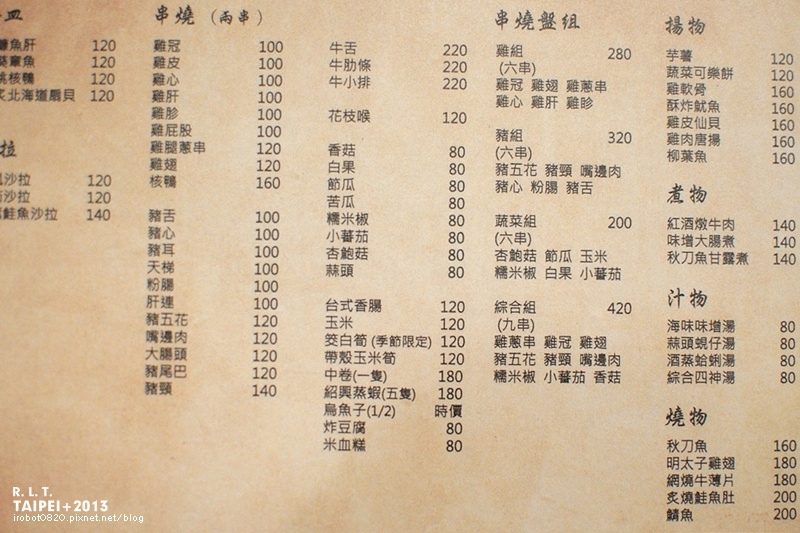 魚肝 120
章魚 120
核鴨 120
炙北海道扇貝 120
拉
沙拉 120
沙拉 120
鮭魚沙拉 140
串燒 (兩串)
雞冠 100
雞皮 100
雞心 100
雞肝 100
雞胗 100
雞屁股 100
雞腿蔥串 120
雞翅 120
核鴨 160
豬舌 100
豬心 100
豬耳 100
天梯 100
粉腸 100
肝連 100
豬五花 120
嘴邊肉 120
大腸頭 120
豬尾巴 120
豬頸 140
牛舌 220
牛肋條 220
牛小排 220
花枝喉 120
香菇 80
白果 80
節瓜 80
苦瓜 80
糯米椒 80
小蕃茄 80
杏鮑菇 80
蒜頭 80
台式香腸 120
玉米 120
筊白筍 (季節限定) 120
帶殼玉米筍 120
中卷(一隻) 180
紹興蒸蝦(五隻) 180
烏魚子(1/2) 時價
炸豆腐 80
米血糕 80
串燒盤組
雞組 280
(六串)
雞冠 雞翅 雞蔥串
雞心 雞肝 雞胗
豬組 320
(六串)
豬五花 豬頸 嘴邊肉
豬心 粉腸 豬舌
蔬菜組 200
(六串)
杏鮑菇 節瓜 玉米
糯米椒 白果 小蕃茄
綜合組 420
(九串)
雞蔥串 雞冠 雞翅
豬五花 豬頸 嘴邊肉
糯米椒 小蕃茄 香菇
揚物
芋薯 120
蔬菜可樂餅 120
雞軟骨 160
酥炸魷魚 160
雞皮仙貝 160
雞肉唐揚 160
柳葉魚 160
煮物
紅酒燉牛肉 140
味增大腸煮 140
秋刀魚甘露煮 140
汁物
海味味增湯 80
蒜頭蜆仔湯 80
酒蒸蛤蜊湯 80
綜合四神湯 80
燒物
秋刀魚 160
明太子雞翅 180
網燒牛薄片 180
炙燒鮭魚肚 200
鯖魚 200
R. L. T.
TAIPEI+2013
irobot0820.pixnet.net/blog